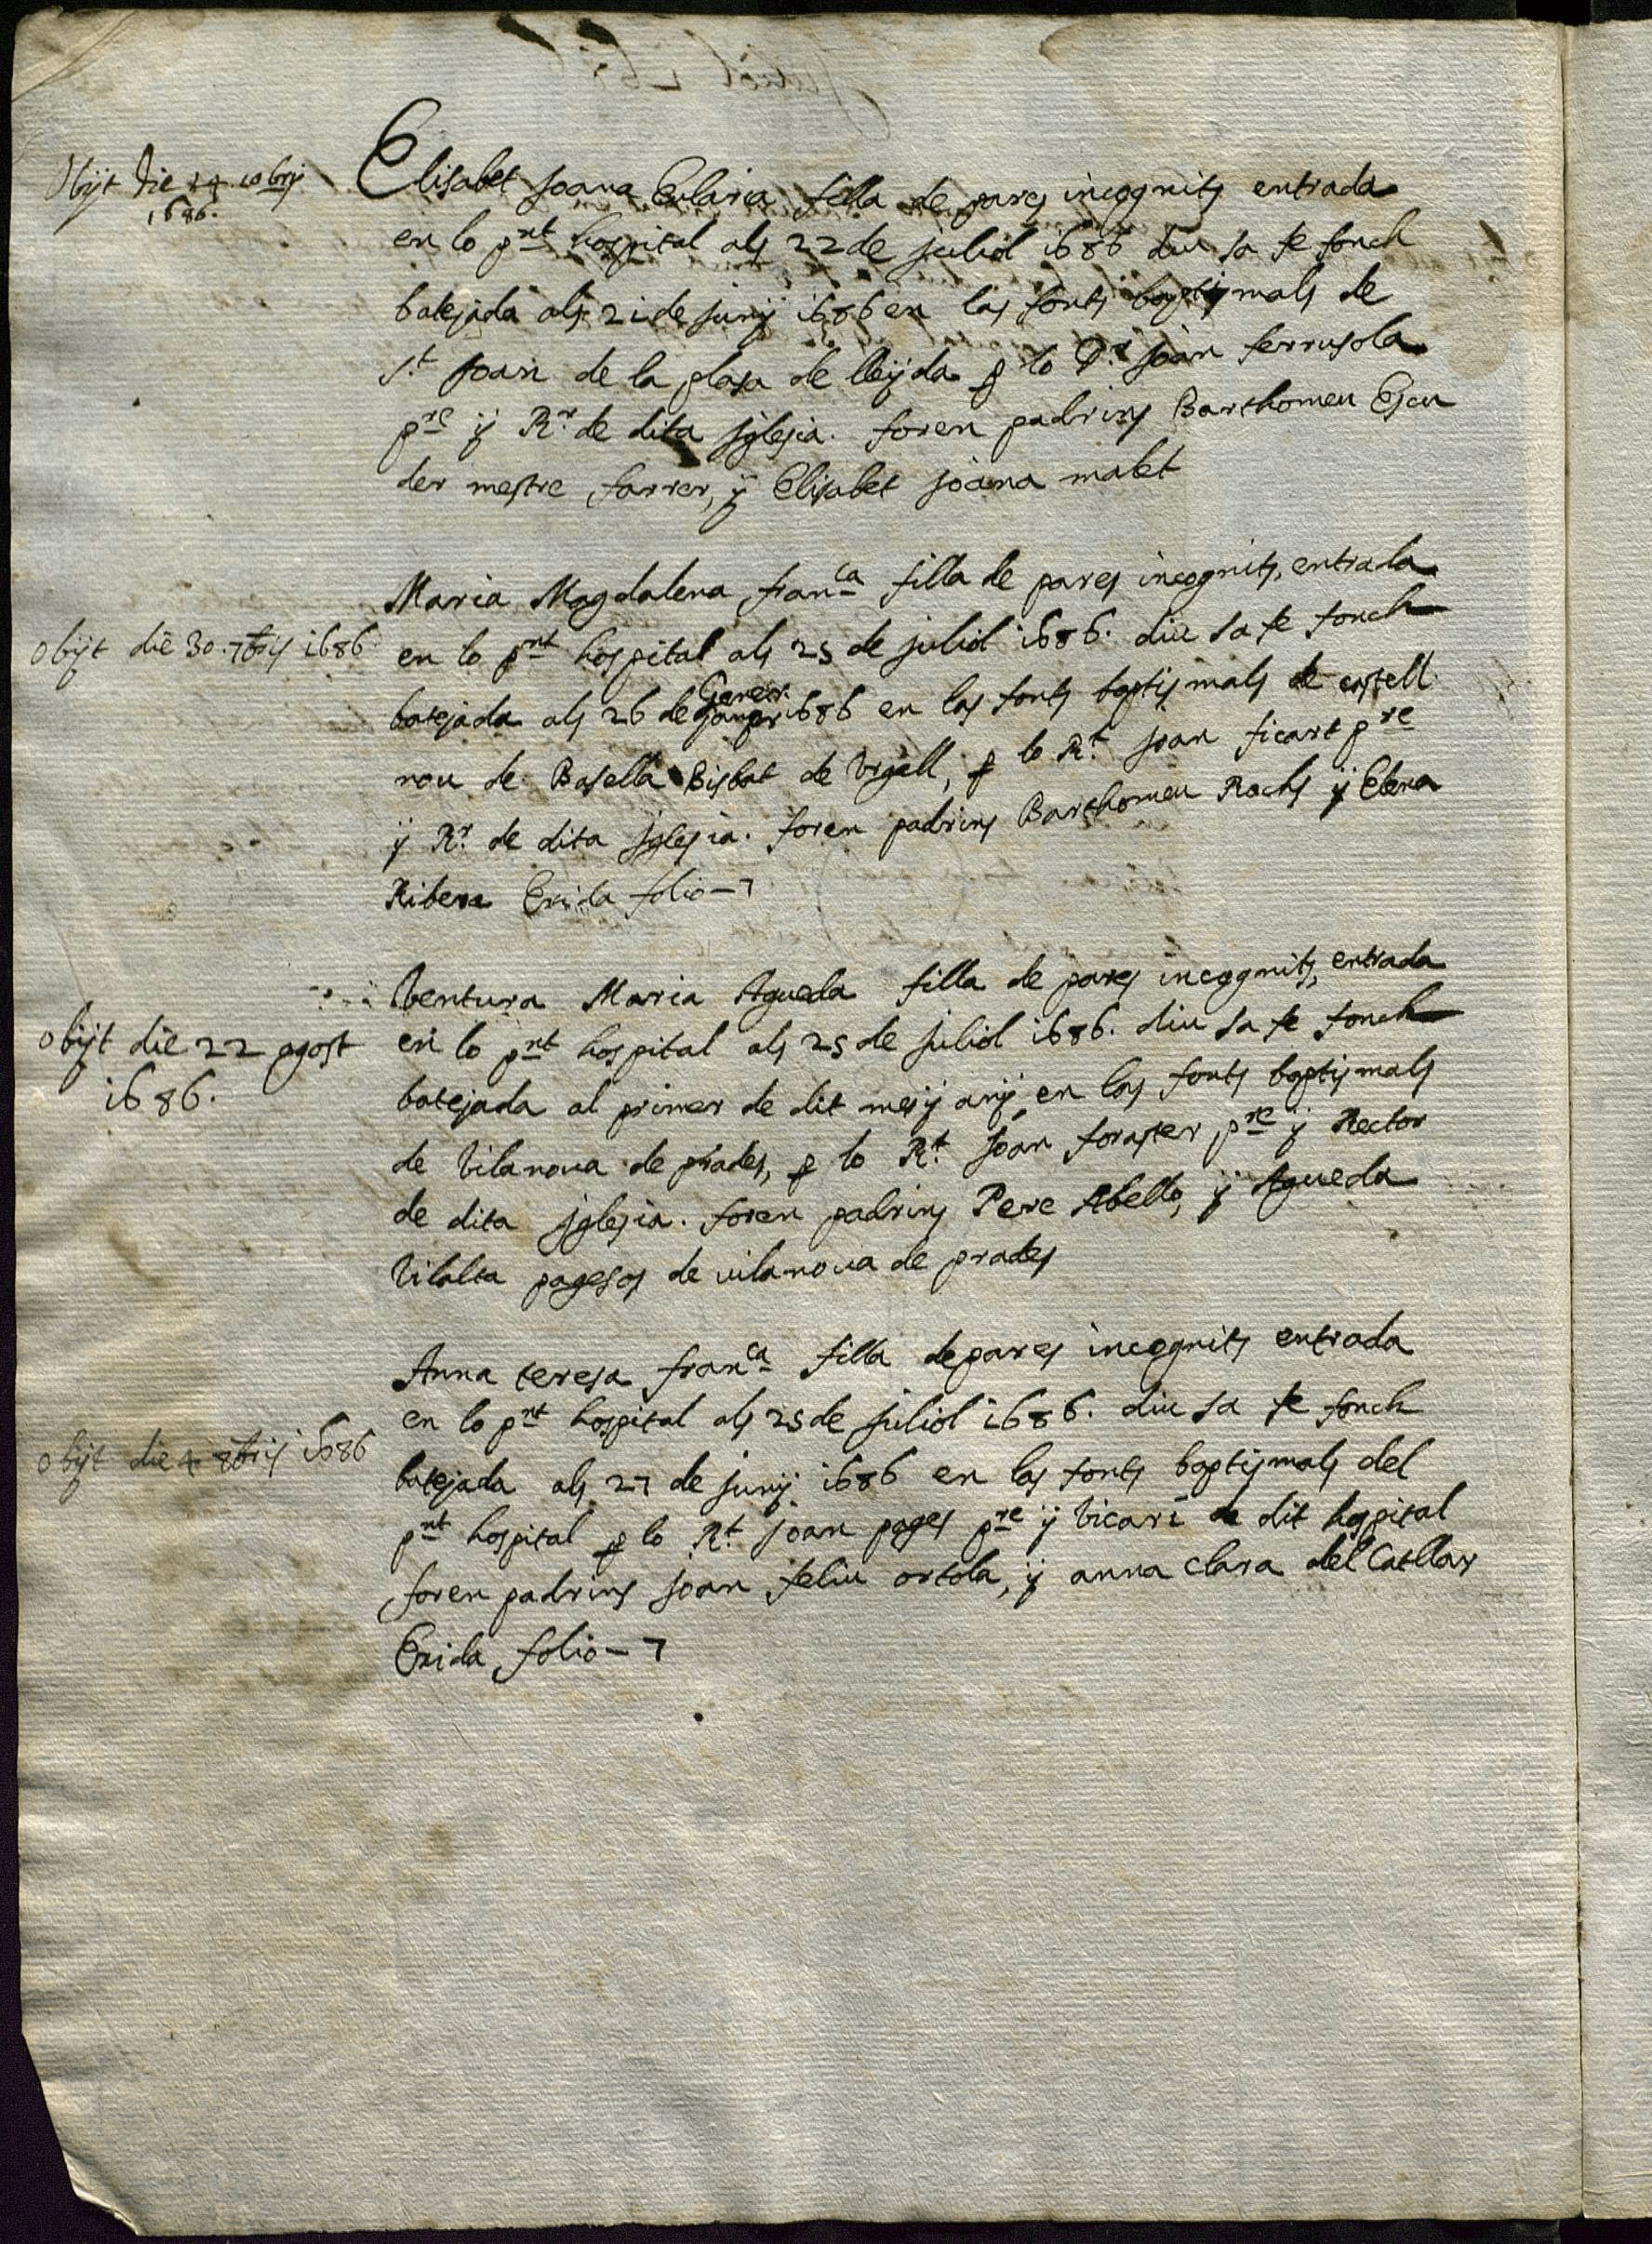 Obijt die 14 10brij
1686.
Elisabet Joana Eularia filla de pares incognits entrada
en lo pnt hospital als 22 de juliol 1686 diu sa fe fonch
batejada als 21 de junÿ 1686 en las fonts baptismals de
St Joan de la plasa de lleÿda p lo Dr Joan ferrusola
pre ÿ Rr de dita jglesia. foren padrins Barthomeu Escu
der mestre farrer, ÿ Elisabet Joana mabet
Obijt die 30. 7brij 1686.
Maria Magdalena franca filla de pares incognits, entrada
en lo pnt hospital als 25 de juliol 1686. diu sa fe fonch
Gener.
batejada als 26 de 1686 en las fonts baptismals de castell
nou de Basella Bisbat de Urgell, p lo Rt Joan ficart pre
ÿ Rr de dita jglesia. foren padrins Barthomeu Rochs ÿ Elena
Ribera Exida folio - 7
Obijt die 22 agost
1686.
Ventura Maria Agueda filla de pares incognits, entrada
en lo pnt hospital als 25 de juliol 1686. diu sa fe fonch
batejada al primer de dit mes ÿ anÿ en las fonts baptismals
de Vilanova de prades, p lo Rt Joan foraster pre ÿ Rector
de dita jglesia. foren padrins Pere Abello, ÿ Agueda
Vilalta pagesos de vilanova de prades
Anna teresa franca filla de pares incognits entrada
en lo pnt hospital als 25 de juliol 1686. diu sa fe fonch
Obijt die 4 8brij 1686
batejada als 27 de junÿ 1686 en las fonts baptismals del
pnt hospital p lo Rt Joan pages pre ÿ Vicari de dit hospital
foren padrins joan feliu ortola, ÿ anna clara del Catllar
Exida folio - 7